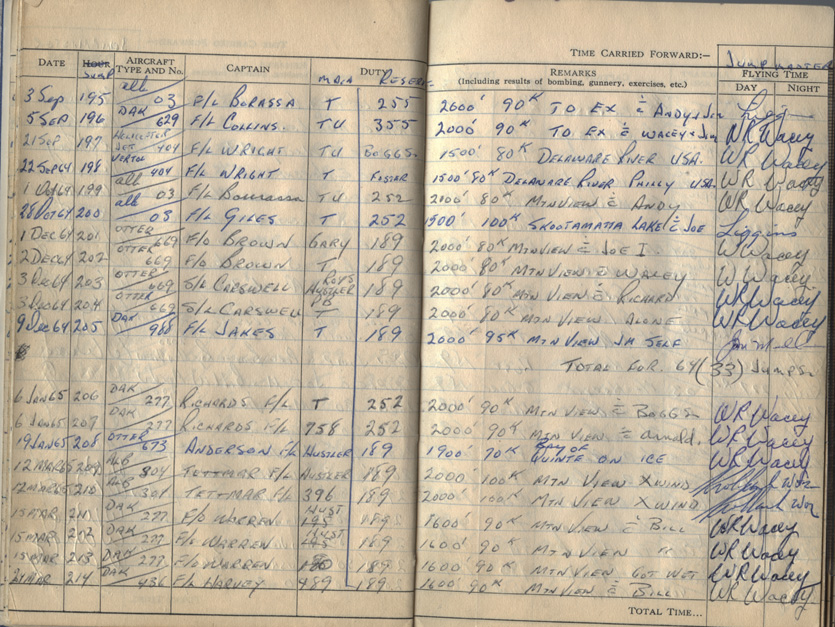 TIME CARRIED FORWARD:—
JUMPMASTER
DATE HOUR JUMP AIRCRAFT TYPE AND No. CAPTAIN MAIN DUTY RESERVE REMARKS FLYING TIME
(Including results of bombing, gunnery, exercises, etc.) DAY NIGHT
3 Sep 195 alb 03 F/L BURASSA T 255 2600' 90K TO EX c̄ ANDY + Jim
5 SEP 196 DAK 629 F/L COLLINS. TU 355 2000' 90K TO EX c̄ WACEY + Jim WR Wacey
21 SEP 197 HELICOPTER 404 F/L WRIGHT TU BOGGS. 1500' 80K DELAWARE RIVER USA. WR Wacey
22 SEP 64 198 VERTOL 404 F/L WRIGHT T FOSTER 1500' 80K DELAWARE RIVER PHILLY USA. WR Wacey
1 Oct 64 199 alb 03 F/L Bourassa TU 252 2100' 80K MTN VIEW c̄ ANDY WR Wacey
28 Oct 64 200 alb 03 F/L GILES T 252 1500' 100K SKOOTAMATTA LAKE c̄ JOE Liggins
1 DEC 64 201 OTTER 669 F/O BROWN GARY 189 2000' 80K MTN VIEW c̄ JOE I. W Wacey
2 DEC 64 202 OTTER 669 F/O BROWN T 189 2000' 80K MTN VIEW c̄ WACEY W Wacey
3 Dec 64 203 OTTER 669 S/L CARSWELL ROYS HUSTLER 189 2000' 80K MTN VIEW c̄ RICHARD WR Wacey
3 Dec 64 204 OTTER 669 S/L CARSWELL T 189 2000' 80K MTN VIEW ALONE WR Wacey
9 Dec 64 205 DAK 988 F/L JAKES T 189 2000' 95K MTN VIEW JM SELF
TOTAL FOR 64 (33) Jumps.
6 JAN 65 206 DAK 277 RICHARDS F/L T 252 2000' 90K MTN VIEW c̄ BOGGS. WR Wacey
6 JAN 65 207 DAK 277 RICHARDS F/L 758 252 2000' 90K MTN VIEW c̄ Arnold. WR Wacey
19 JAN 65 208 OTTER 673 ANDERSON F/L HUSTLER 189 1900' 70K BAY OF QUINTE ON ICE WR Wacey
12 MAR 65 209 ALB 304 TETTMAR F/L HUSTLER 189 2000' 100K MTN VIEW X WIND
12 MAR 65 210 ALB 301 TETTMAR F/L 396 189 2000' 100K MTN VIEW X WIND
15 MAR 211 DAK 277 F/O WARREN HUST 189 1600' 90K MTN VIEW c̄ BILL WR Wacey
15 MAR 212 DAK 277 F/O WARREN HUST 189 1600' 90K MTN VIEW " WR Wacey
15 MAR 213 DAK 277 F/O WARREN 189 1600' 90K MTN VIEW GOT WET WR Wacey
24 MAR 214 DAK 436 F/L HARVEY 489 189 1600' 90K MTN VIEW c̄ BILL WR Wacey
TOTAL TIME...